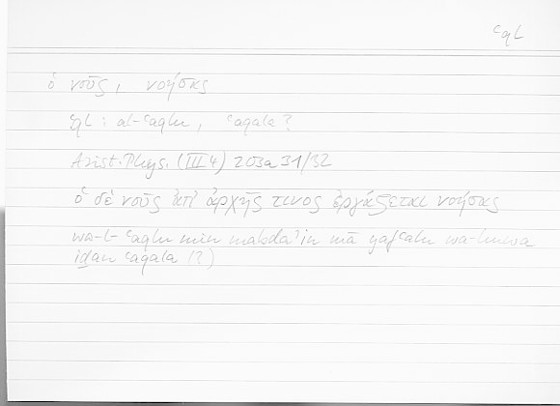 ʿql
ὁ νοῦς, νοήσας
ʿql : al-ʿaqlu, ʿaqala?
Arist. Phys. (III 4) 203a 31/32
ὁ δὲ νοῦς ἀπ' ἀρχῆς τινος ἐργάζεται νοήσας
wa-l-ʿaqlu min mabdaʾin mā yafʿalu wa-huwa
iḏan ʿaqala (?)